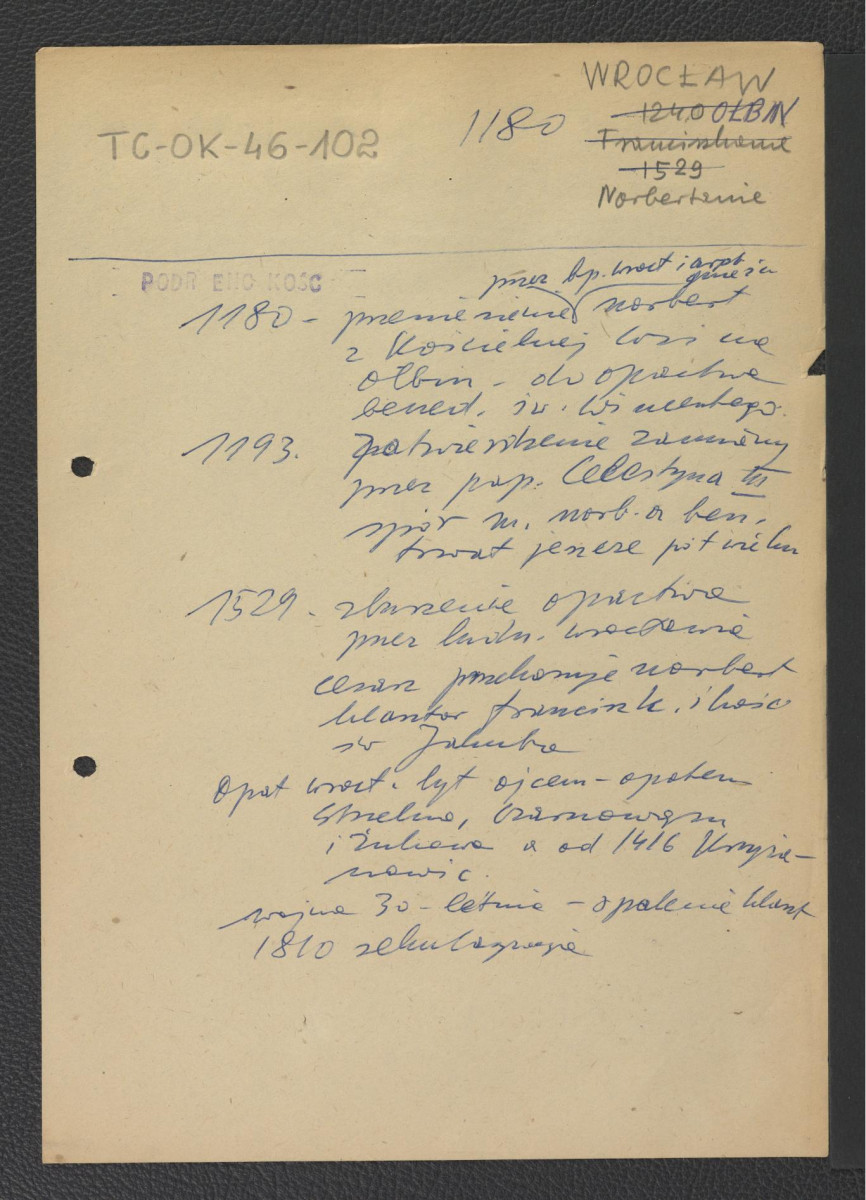 WROCŁAW
1240 OŁBIN
TC-OK-46-102
1180
Franciszkanie
1529
Norbertanie
PODR ENC KOŚC
przez bp. wrocł i arpb gnieźn
1180 - przeniesienie norbert
z Kościelnej Wsi na
Ołbin - do opactwa
bened. św. Wincentego.
1193. Zatwierdzenie zamiany
przez pap. Celestyna III
spór m. norb. a ben.
trwał jeszcze pół wieku
1529 - zburzenie opactwa
przez ludn. wrocławia
cesarz przekazuje norbert
klasztor francisk. i kość
św Jakuba
Opat wrocł. był ojcem-opatem
Strzelna, Czarnowąsu
i Żukowa a od 1416 Krzyża-
nowic.
wojna 30-letnia - spalenie klaszt
1810 sekularyzacja